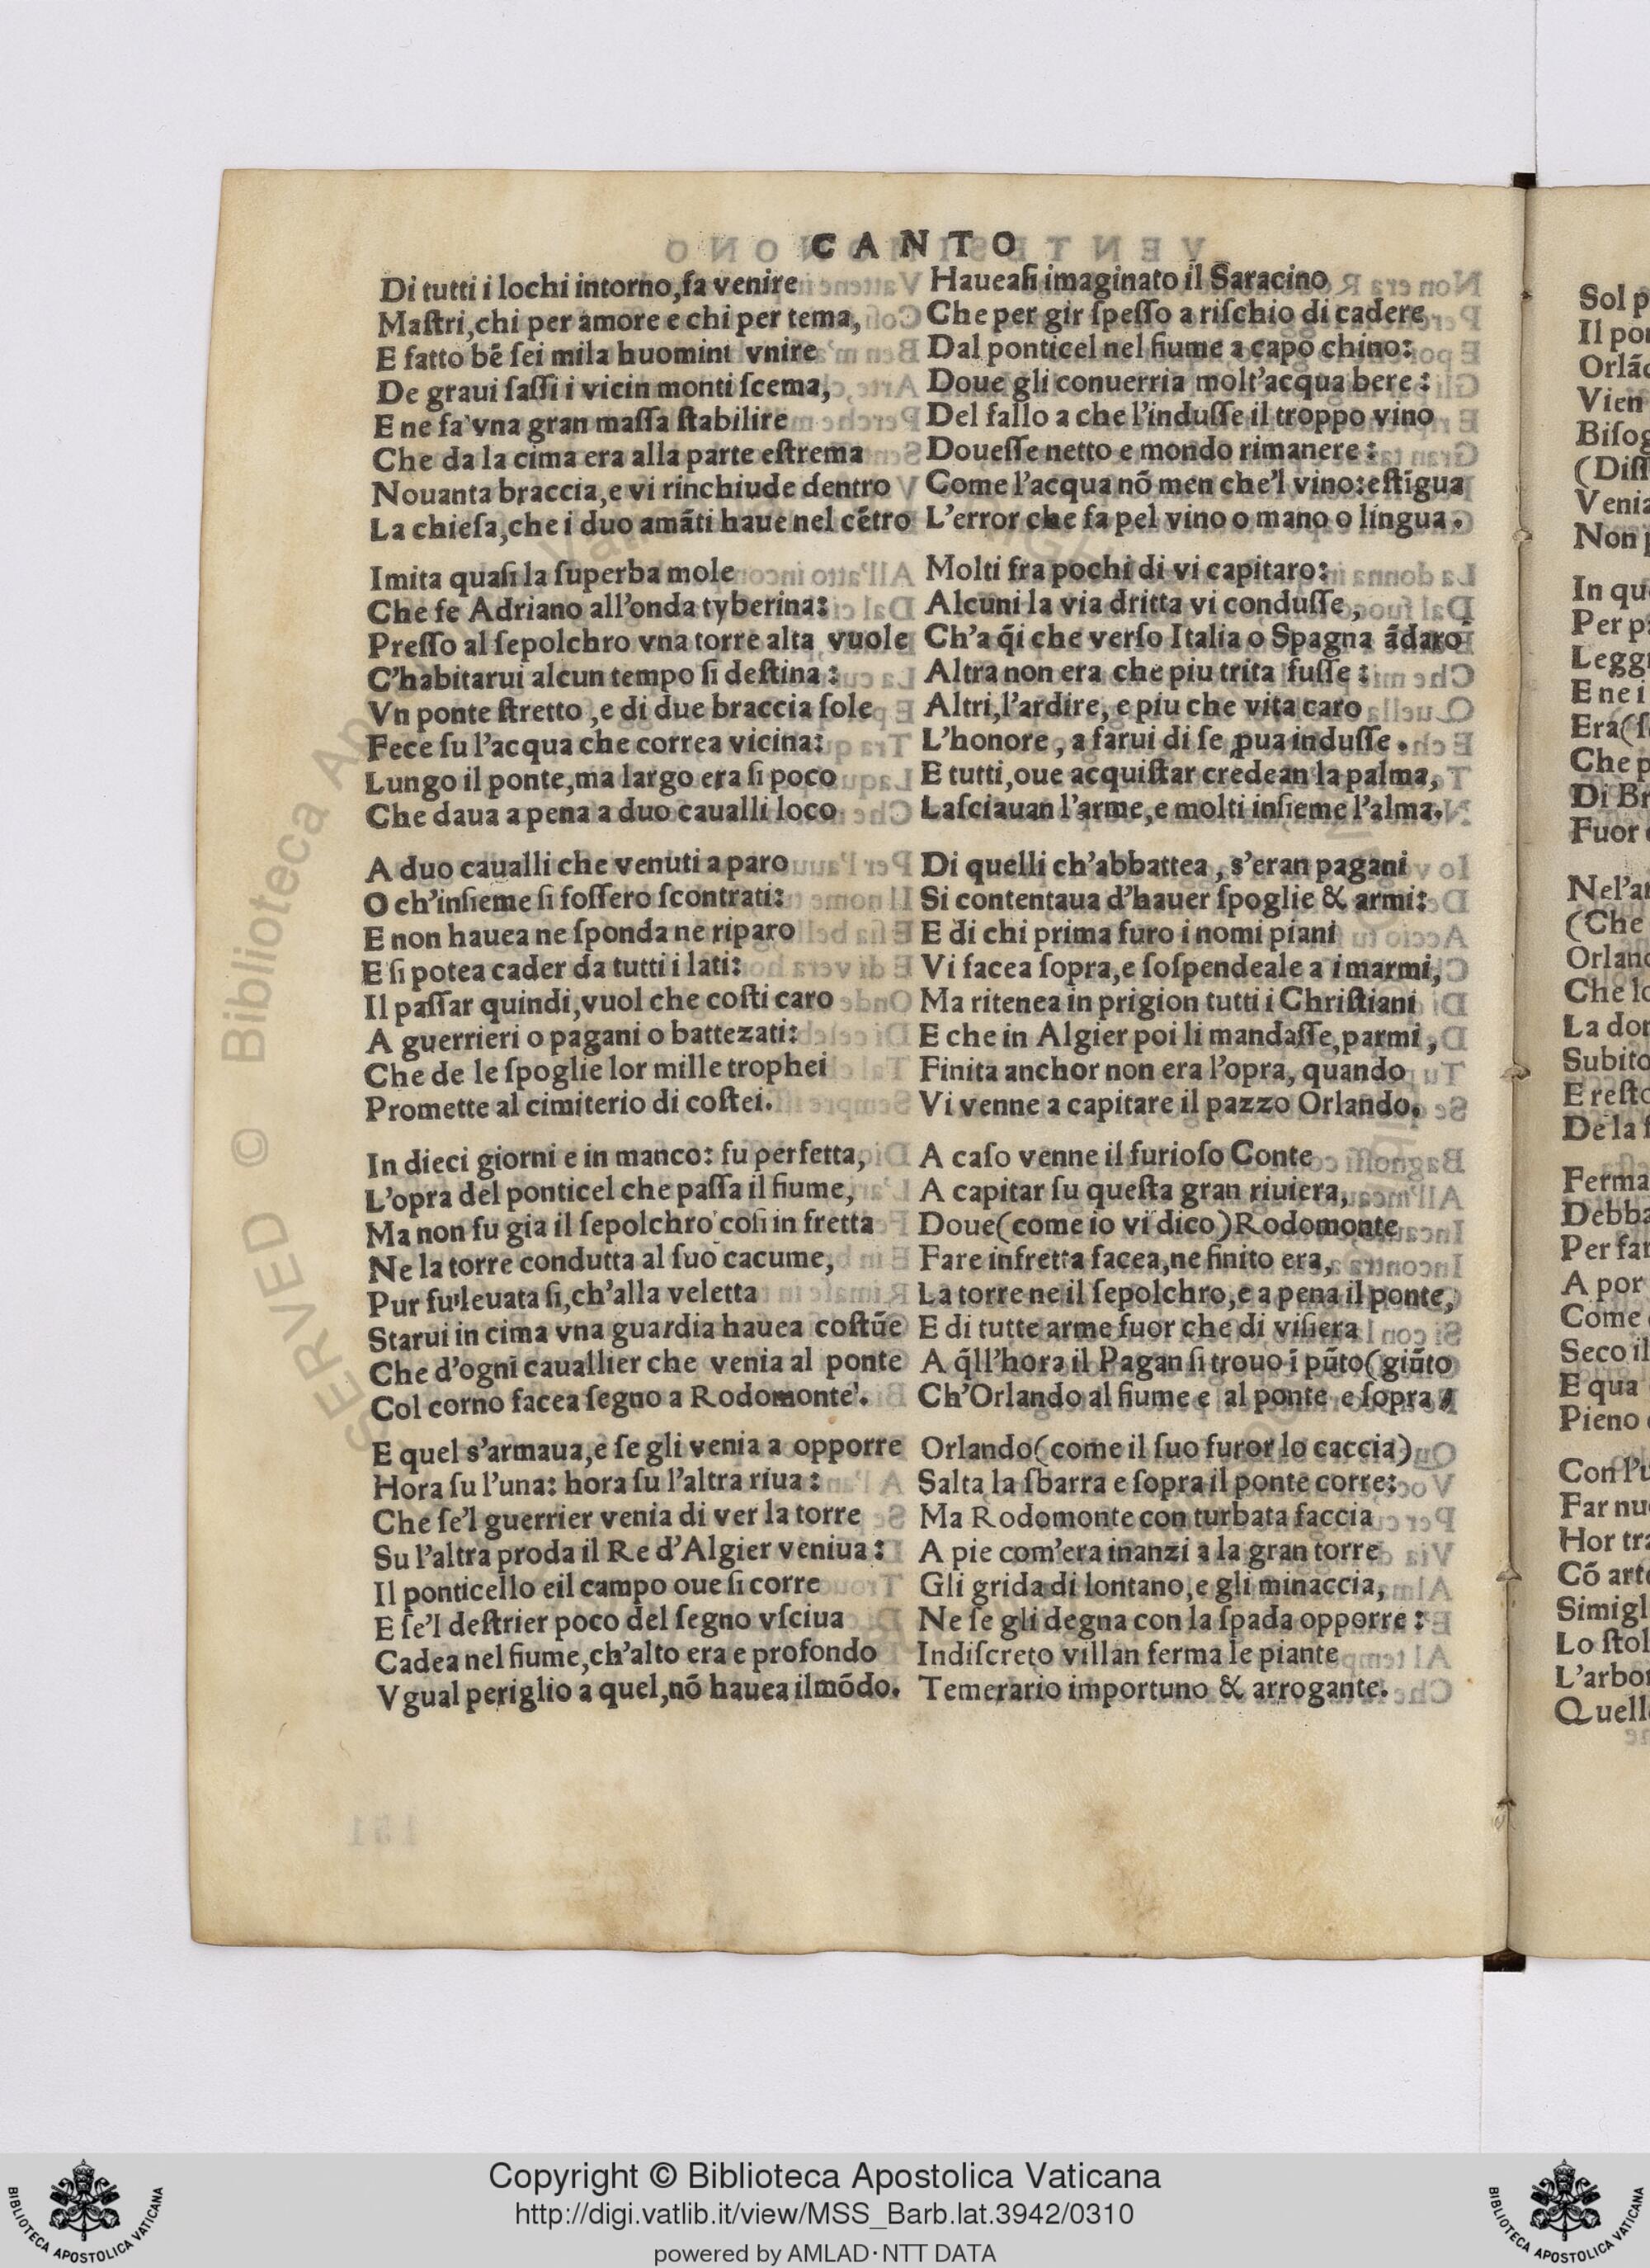 CANTO
Di tutti i lochi intorno,fa venire
Maſtri,chi per amore e chi per tema,
E fatto bẽ ſei mila huomini vnire
De graui ſaſſi i vicin monti ſcema,
E ne fa vna gran maſſa ſtabilire
Che da la cima era alla parte eſtrema
Nouanta braccia,e vi rinchiude dentro
La chieſa,che i duo amãti haue nel cẽtro
Imita quaſi la ſuperba mole
Che fe Adriano all'onda tyberina:
Preſſo al ſepolchro vna torre alta vuole
C'habitarui alcun tempo ſi deſtina:
Vn ponte ſtretto,e di due braccia ſole
Fece ſu l'acqua che correa vicina:
Lungo il ponte,ma largo era ſi poco
Che daua a pena a duo caualli loco
A duo caualli che venuti a paro
O ch'inſieme ſi foſſero ſcontrati:
E non hauea ne ſponda ne riparo
E ſi potea cader da tutti i lati:
Il paſſar quindi,vuol che coſti caro
A guerrieri o pagani o battezati:
Che de le ſpoglie lor mille trophei
Promette al cimiterio di coſtei.
In dieci giorni e in manco: fu perfetta,
L'opra del ponticel che paſſa il fiume,
Ma non fu gia il ſepolchro coſi in fretta
Ne la torre condutta al ſuo cacume,
Pur fu leuata ſi,ch'alla veletta
Starui in cima vna guardia hauea coſtũe
Che d'ogni cauallier che venia al ponte
Col corno facea ſegno a Rodomonte.
E quel s'armaua,e ſe gli venia a opporre
Hora ſu l'una: hora ſu l'altra riua:
Che ſe'l guerrier venia di ver la torre
Su l'altra proda il Re d'Algier veniua:
Il ponticello eil campo oue ſi corre
E ſe'l deſtrier poco del ſegno vſciua
Cadea nel fiume,ch'alto era e profondo
Vgual periglio a quel,nõ hauea ilmõdo.
Haueaſi imaginato il Saracino
Che per gir ſpeſſo a riſchio di cadere
Dal ponticel nel fiume a capo chino:
Doue gli conuerria molt'acqua bere:
Del fallo a che l'induſſe il troppo vino
Doueſſe netto e mondo rimanere:
Come l'acqua nõ men che'l vino:eſtĩgua
L'error che fa pel vino o mano o lingua.
Molti fra pochi di vi capitaro:
Alcuni la via dritta vi conduſſe,
Ch'a q̃i che verſo Italia o Spagna ãdaro
Altra non era che piu trita fuſſe:
Altri,l'ardire, e piu che vita caro
L'honore, a farui di ſe ꝓua induſſe.
E tutti,oue acquiſtar credean la palma,
Laſciauan l'arme,e molti inſieme l'alma.
Di quelli ch'abbattea, s'eran pagani
Si contentaua d'hauer ſpoglie & armi:
E di chi prima furo i nomi piani
Vi facea ſopra,e ſoſpendeale a i marmi,
Ma ritenea in prigion tutti i Chriſtiani
E che in Algier poi li mandaſſe,parmi,
Finita anchor non era l'opra, quando
Vi venne a capitare il pazzo Orlando.
A caſo venne il furioſo Conte
A capitar ſu queſta gran riuiera,
Doue(come io vi dico)Rodomonte
Fare infretta facea,ne finito era,
La torre ne il ſepolchro,e a pena il ponte,
E di tutte arme fuor che di viſiera
A q̃ll'hora il Pagan ſi trouo ĩ pũto(giũto
Ch'Orlando al fiume e al ponte e ſopra,
Orlando(come il ſuo furor lo caccia)
Salta la ſbarra e ſopra il ponte corre:
Ma Rodomonte con turbata faccia
A pie com'era inanzi a la gran torre
Gli grida di lontano,e gli minaccia,
Ne ſe gli degna con la ſpada opporre:
Indiſcreto villan ferma le piante
Temerario importuno & arrogante.
Sol p
Il pon
Orlãd
Vien
Biſog
(Diſſ
Venia
Non p
In qu
Per p
Legg
E ne i
Era(ſ
Che p
Di Br
Fuor
Nel'ar
(Che
Orland
Che lo
La don
Subito
E reſto
De la f
Ferma
Debba
Per far
A por
Come
Seco il
E qua
Pieno
Con l'u
Far nu
Hor tra
Cõ arte
Simigl
Lo ſtol
L'arbor
Quell
SERVED © Biblioteca Ap
Copyright © Biblioteca Apostolica Vaticana
http://digi.vatlib.it/view/MSS_Barb.lat.3942/0310
powered by AMLAD·NTT DATA
BIBLIOTECA APOSTOLICA VATICANA
BIBLIOTECA APOSTOLICA VATICANA